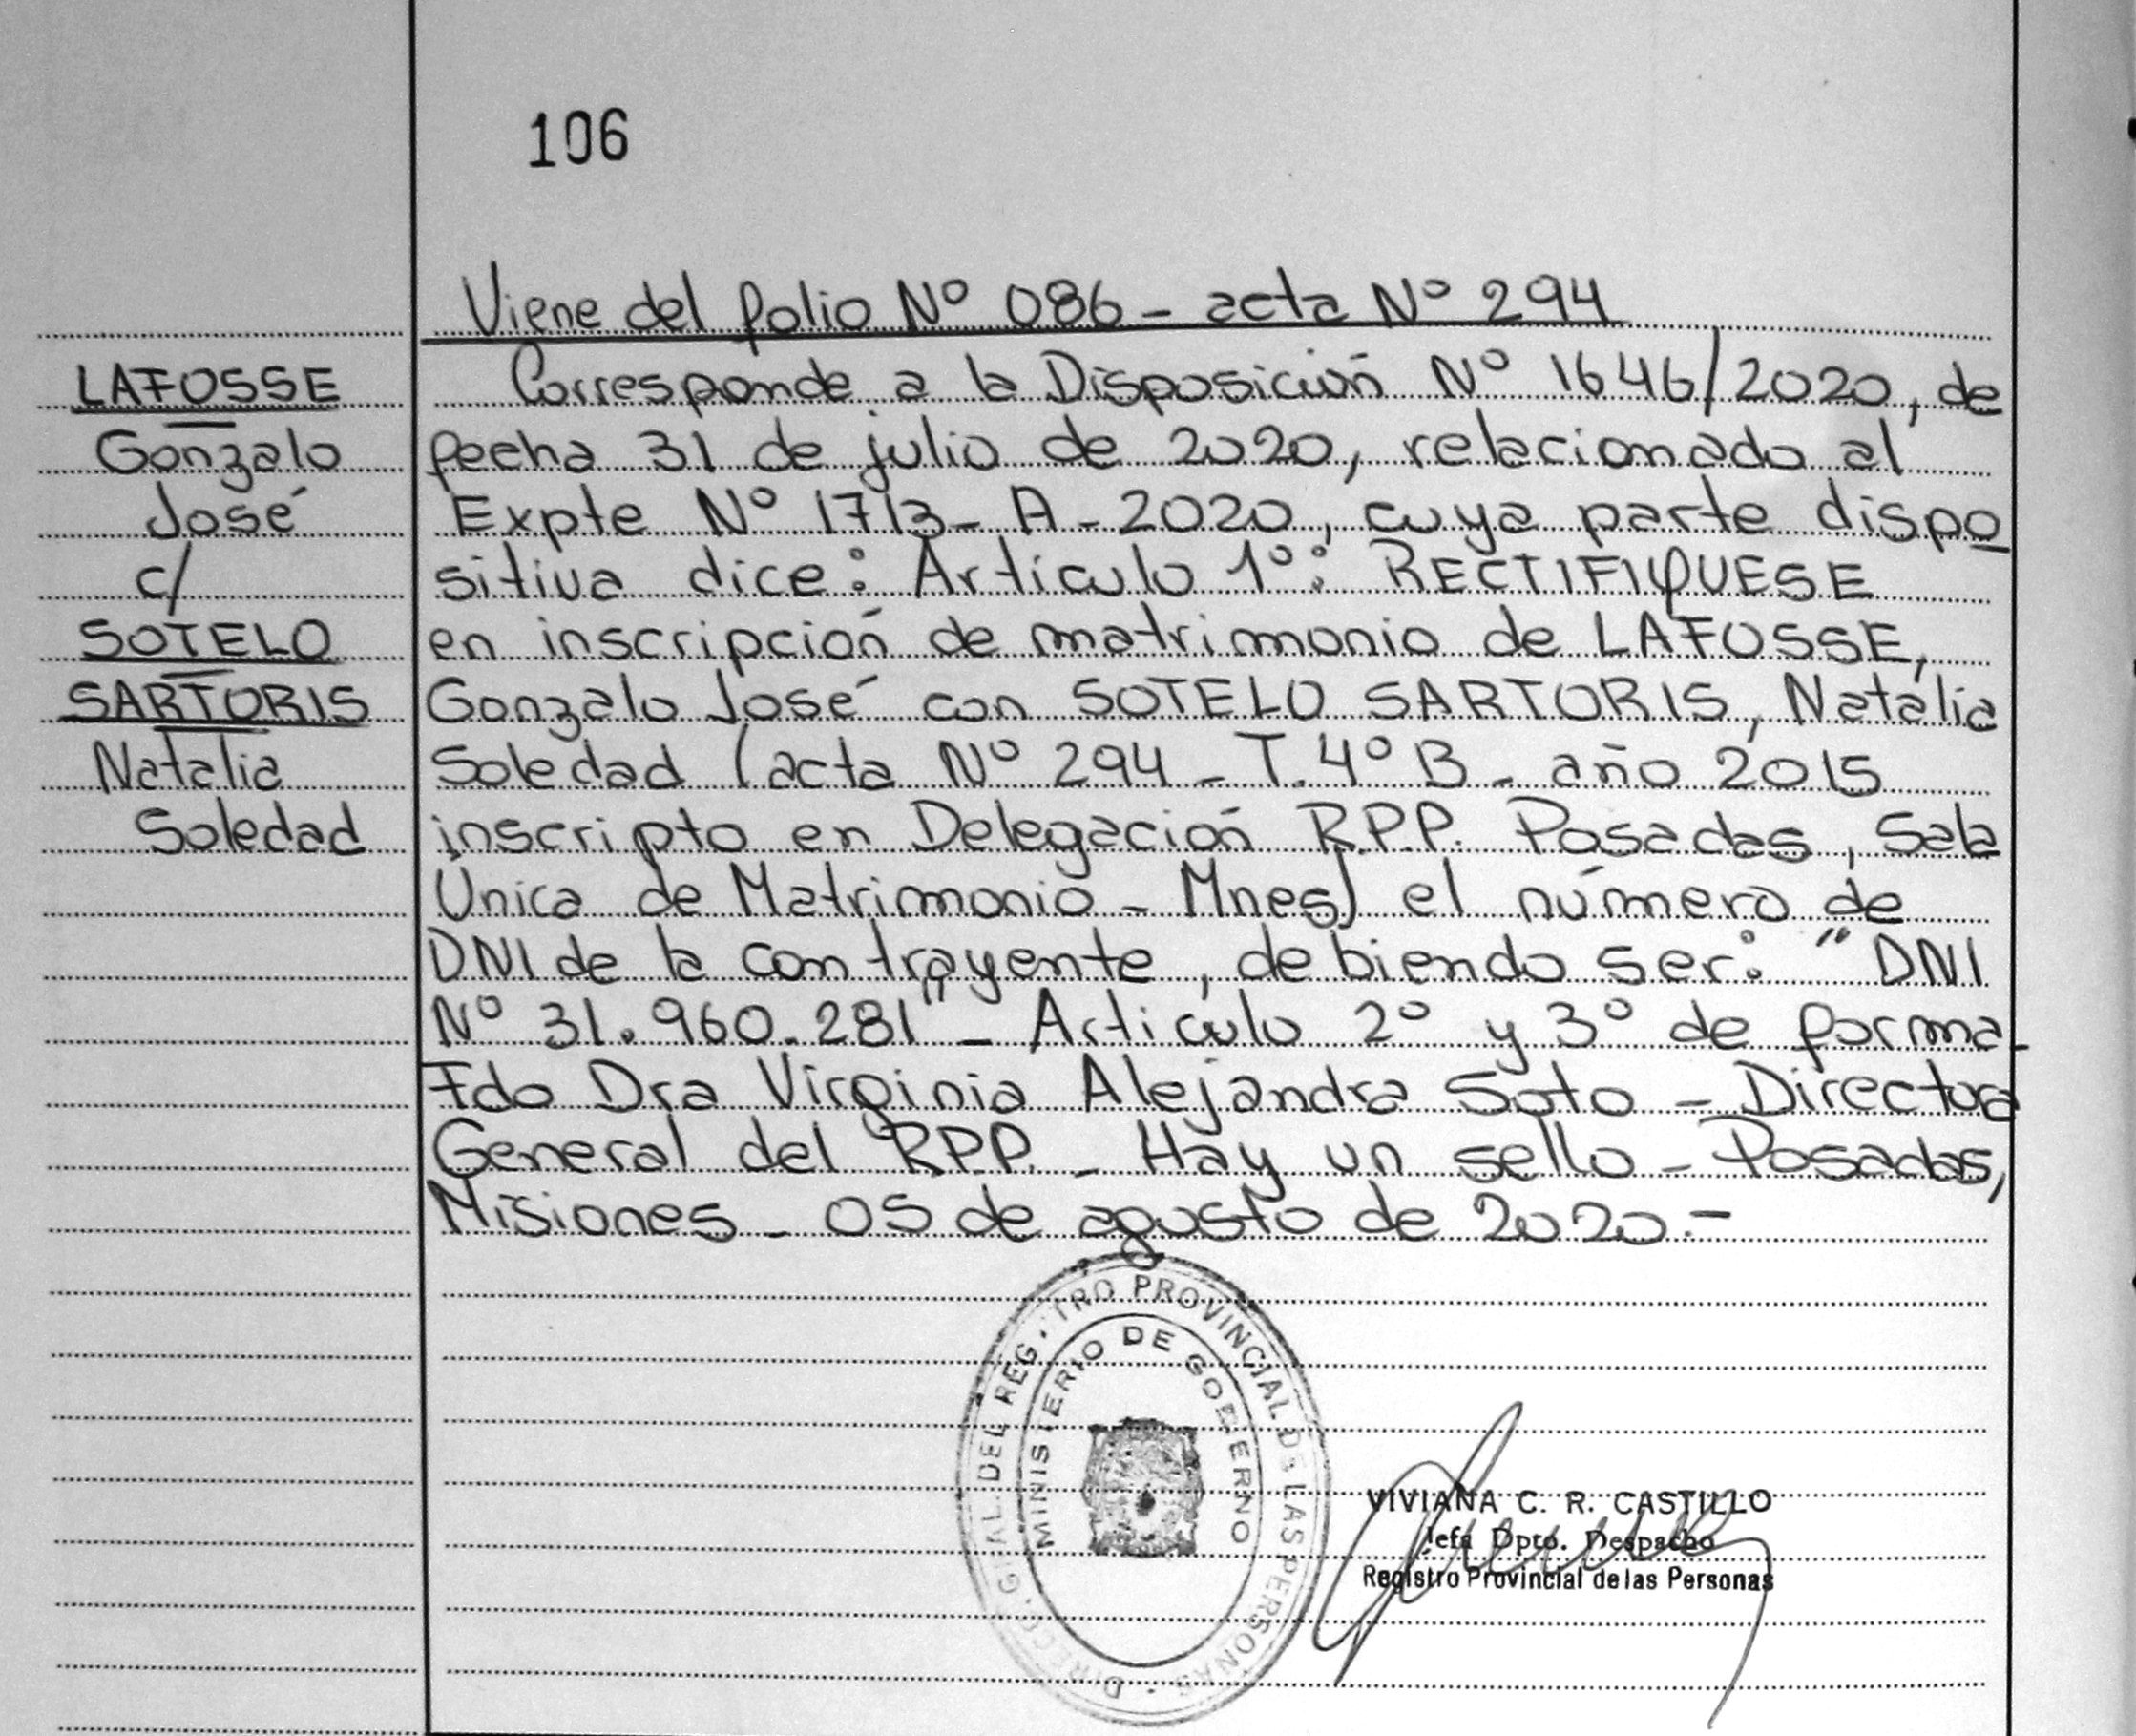 106
Viene del folio Nº 086 - acta Nº 294
LAFOSSE
Gonzalo
José
c/
SOTELO
SARTORIS
Natalia
Soledad
Corresponde a la Disposición Nº 1646/2020, de
fecha 31 de julio de 2020, relacionado al
Expte Nº 1713 - A - 2020, cuya parte dispo
sitiva dice: Artículo 1º: RECTIFIQUESE
en inscripción de matrimonio de LAFOSSE,
Gonzalo José con SOTELO SARTORIS, Natalia
Soledad (acta Nº 294 - T. 4º B - año 2015
inscripto en Delegación R.P.P. Posadas, Sala
Única de Matrimonio - Mnes) el número de
DNI de la contrayente, debiendo ser: "DNI
Nº 31.960.281" - Artículo 2º y 3º de forma -
Fdo Dra Virginia Alejandra Soto - Directora
General del RPP. - Hay un sello - Posadas,
Misiones - 05 de agosto de 2020.-
DIRECC. GRAL. DEL REGISTRO PROVINCIAL DE LAS PERSONAS
MINISTERIO DE GOBIERNO
VIVIANA C. R. CASTILLO
Jefa Dpto. Despacho
Registro Provincial de las Personas